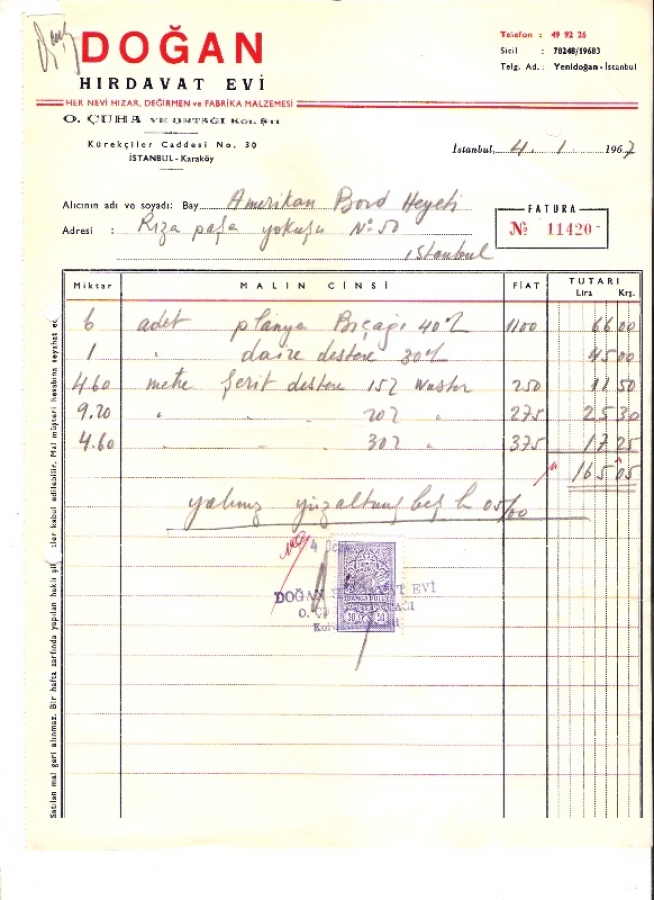 DOĞAN
HIRDAVAT EVİ
HER NEVİ HIZAR, DEĞİRMEN ve FABRİKA MALZEMESİ
O. ÇUHA VE ORTAĞI KOL. ŞTİ
Kürekçiler Caddesi No. 30
İSTANBUL - Karaköy
Telefon : 49 92 26
Sicil : 78248/19683
Telg. Ad. : Yenidoğan - İstanbul
İstanbul, 4. 1 1967
Alıcının adı ve soyadı: Bay Amerikan Bord Heyeti
Adresi : Rıza paşa yokuşu No 50
istanbul
FATURA
No 11420
Miktar MALIN CİNSİ FİAT TUTARI
Lira Krş.
6 adet plânya Bıçağı 40 1100 66 00
1 " daire destere 30 45 00
4.60 metre şerit destere 15 250 11 50
9.20 " " " 20 " 275 25 30
4.60 " " " 30 " 375 17 25
165 05
yalnız yüzaltmış beş L 05/00
4
DOĞAN HIRDAVAT EVİ
DAMGA PULU
50 50
Satılan mal geri alınmaz. Bir hafta zarfında yapılan haklı şikâyetler kabul edilebilir. Mal müşteri hesabına seyahat ed